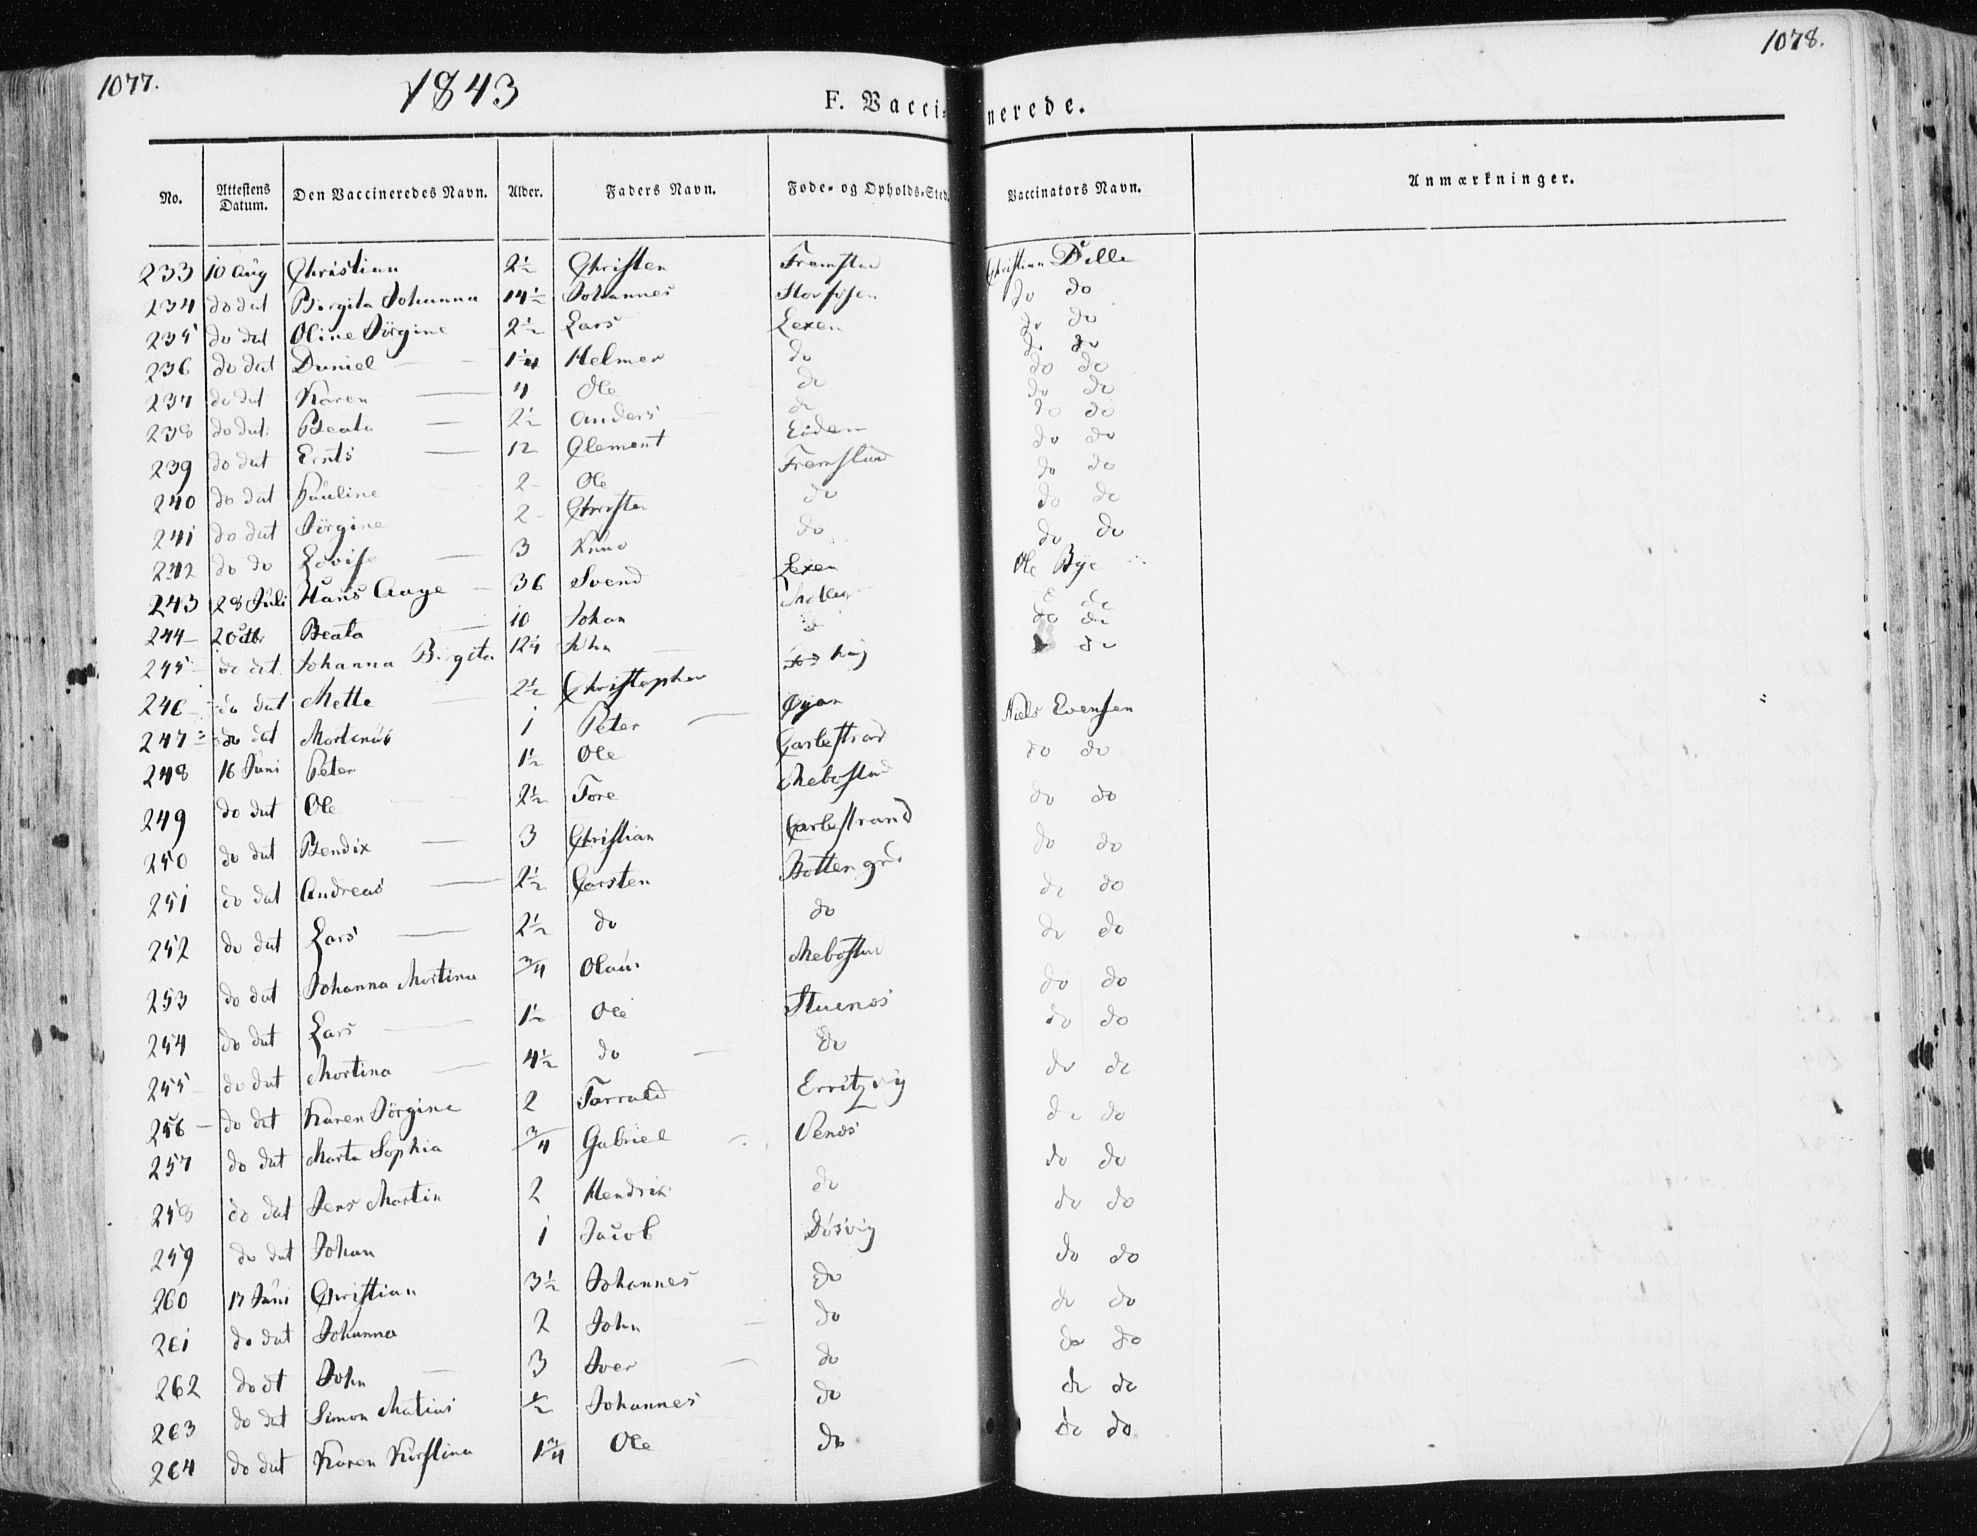 1077. 1843 F. Vaccinerede. 1078.
No. Attestens Datum. Den Vaccineredes Navn. Alder. Faders Navn. Føde- og Opholds-Sted. Vaccinators Navn. Anmærkninger.
233 10 Aug Christian 2½ Christen Fremstad Christian Dille
234 do dat Birgita Johanna 14½ Johannes Storfosen do do
235 do dat Oline Jörgine 2½ Lars Lexen do do
236 do dat Daniel 1¼ Helmer do do do
237 do dat Karen 4 Ole do do do
238 do dat Beata 2½ Anders do do do
239 do dat Ernts 12 Clement do do
240 do dat Pauline 2 Ole Fremstad do do
241 do dat Jörgine 2 Christen do do do
242 do do Lovise 3 Knud do do do
243 28 Juli Hans Aage 36 Svend Lexen Ole Bye
244 Beata 10 Johan do do
245 do dat Johanna Birgita John do
246 do dat Mette 2½ Christopher do
247 do dat 1 Peter Öyan Niels Evensen
248 16 Juni Peter 1½ Ole Garbestrand do do
249 do dat Ole 2½ Tore Mebostad do do
250 do dat Bendix 3 Christian Garbestrand do do
251 do dat Andreas 2½ Carsten do do
252 do dat Lars 2½ do do do do
253 do dat Johanna Martina ¾ Mebostad do do
254 do dat Lars 1½ Ole do do
255 do dat Martina 4½ do do do do
256 do dat Karen Jörgine 2 Erritzvig do do
257 do dat Marta Sophia ¾ Gabriel do do
258 do dat Jens Martin 2 Hendrik do do do
259 do dat Johan 1 Jacob Dösvig do do
260 17 Juni Christian 3½ Johannes do do do
261 do dat Johanna 2 John do do do
262 do dt John 3 Iver do do do
263 do dat Simon Matias ½ Johannes do do do
264 do dat Karen Kirstina 1¾ Ole do do do